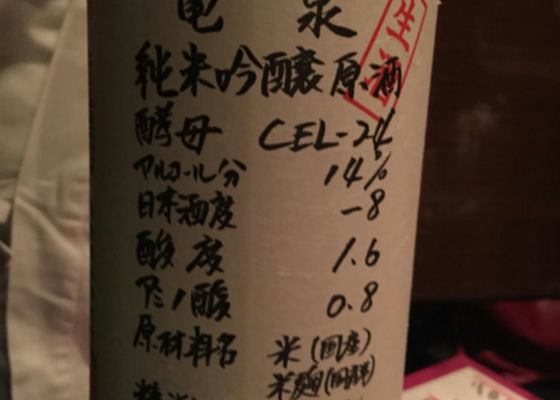 亀泉
生酒
純米吟醸原酒
酵母 CEL-24
アルコール分 14%
日本酒度 -8
酸度 1.6
アミノ酸 0.8
原材料名 米(国産)
米麹(国産米)